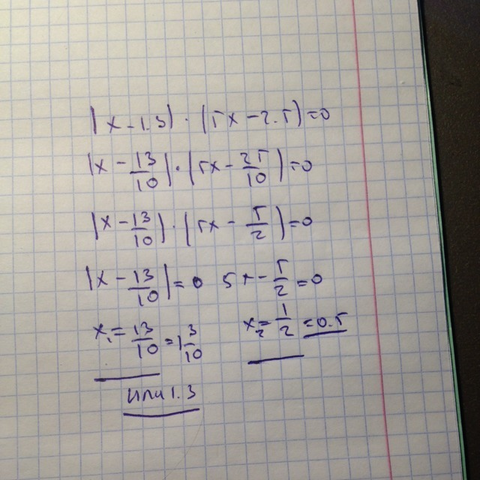 |x - 1.3| · (5x - 2.5) = 0
|x - 13/10| · (5x - 25/10) = 0
|x - 13/10| · (5x - 5/2) = 0
|x - 13/10| = 0 5x - 5/2 = 0
x₁ = 13/10 = 1 3/10 x₂ = 1/2 = 0.5
или 1.3